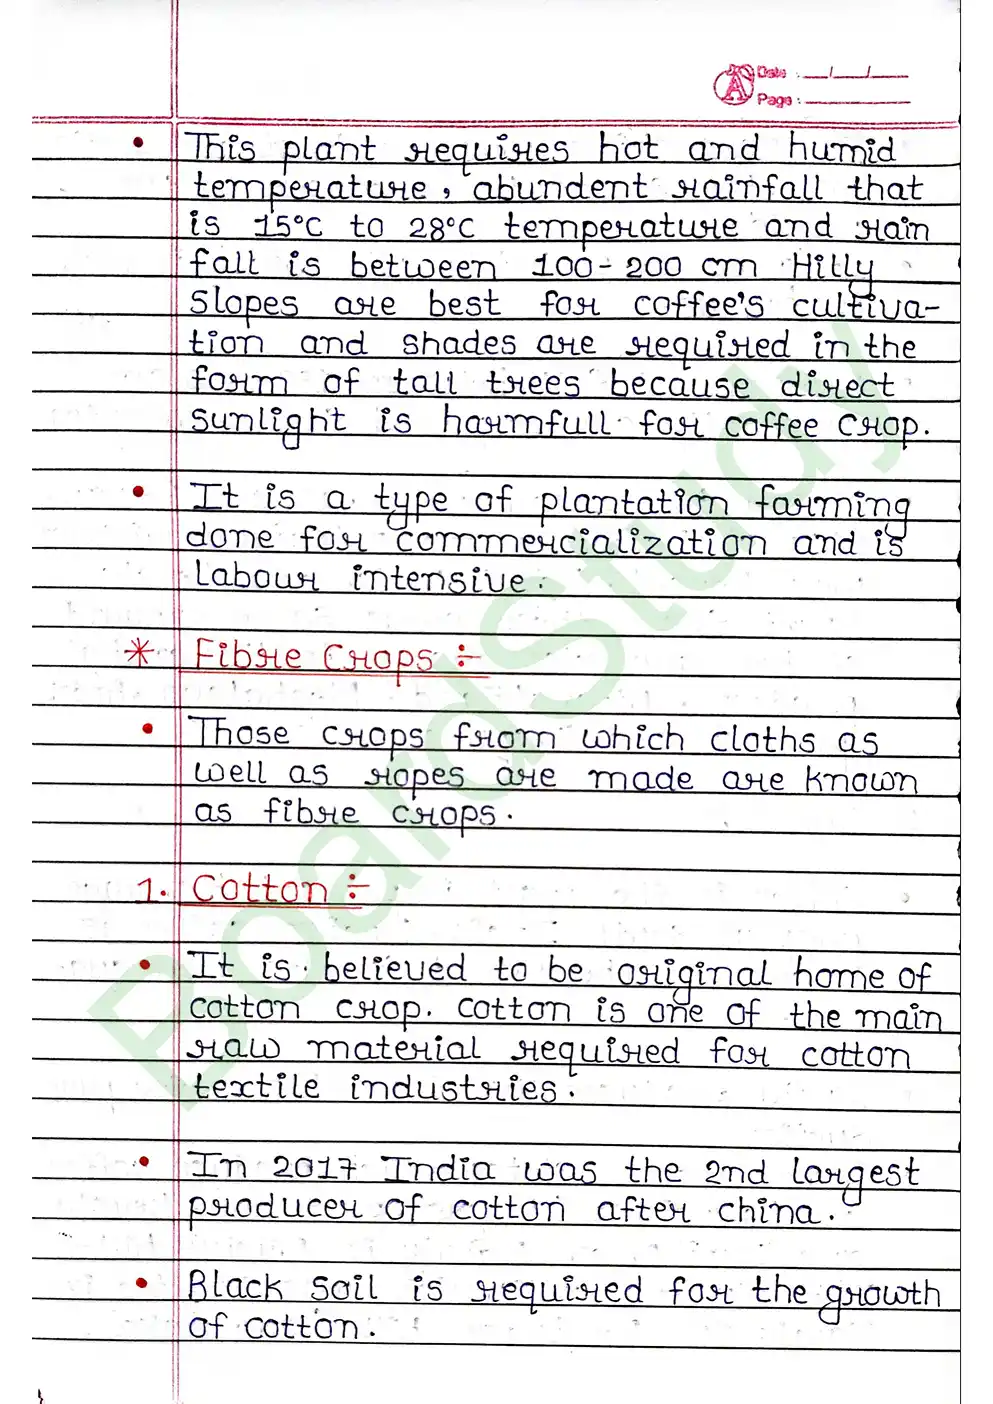 Date : __/__/__
Page :
• This plant requires hot and humid
temperature, abundent rainfall that
is 15°C to 28°C temperature and rain
fall is between 100-200 cm Hilly
Slopes are best for coffee's cultiva-
tion and shades are required in the
form of tall trees because direct
sunlight is harmfull for coffee crop.
• It is a type of plantation farming
done for commercialization and is
Labour intensive.
* Fibre Crops ÷
• Those crops from which cloths as
well as ropes are made are known
as fibre crops.
1. Cotton ÷
• It is believed to be original home of
cotton crop. Cotton is one of the main
raw material required for cotton
textile industries.
• In 2017 India was the 2nd largest
producer of cotton after china.
• Black Soil is required for the growth
of cotton.
BoardStudy